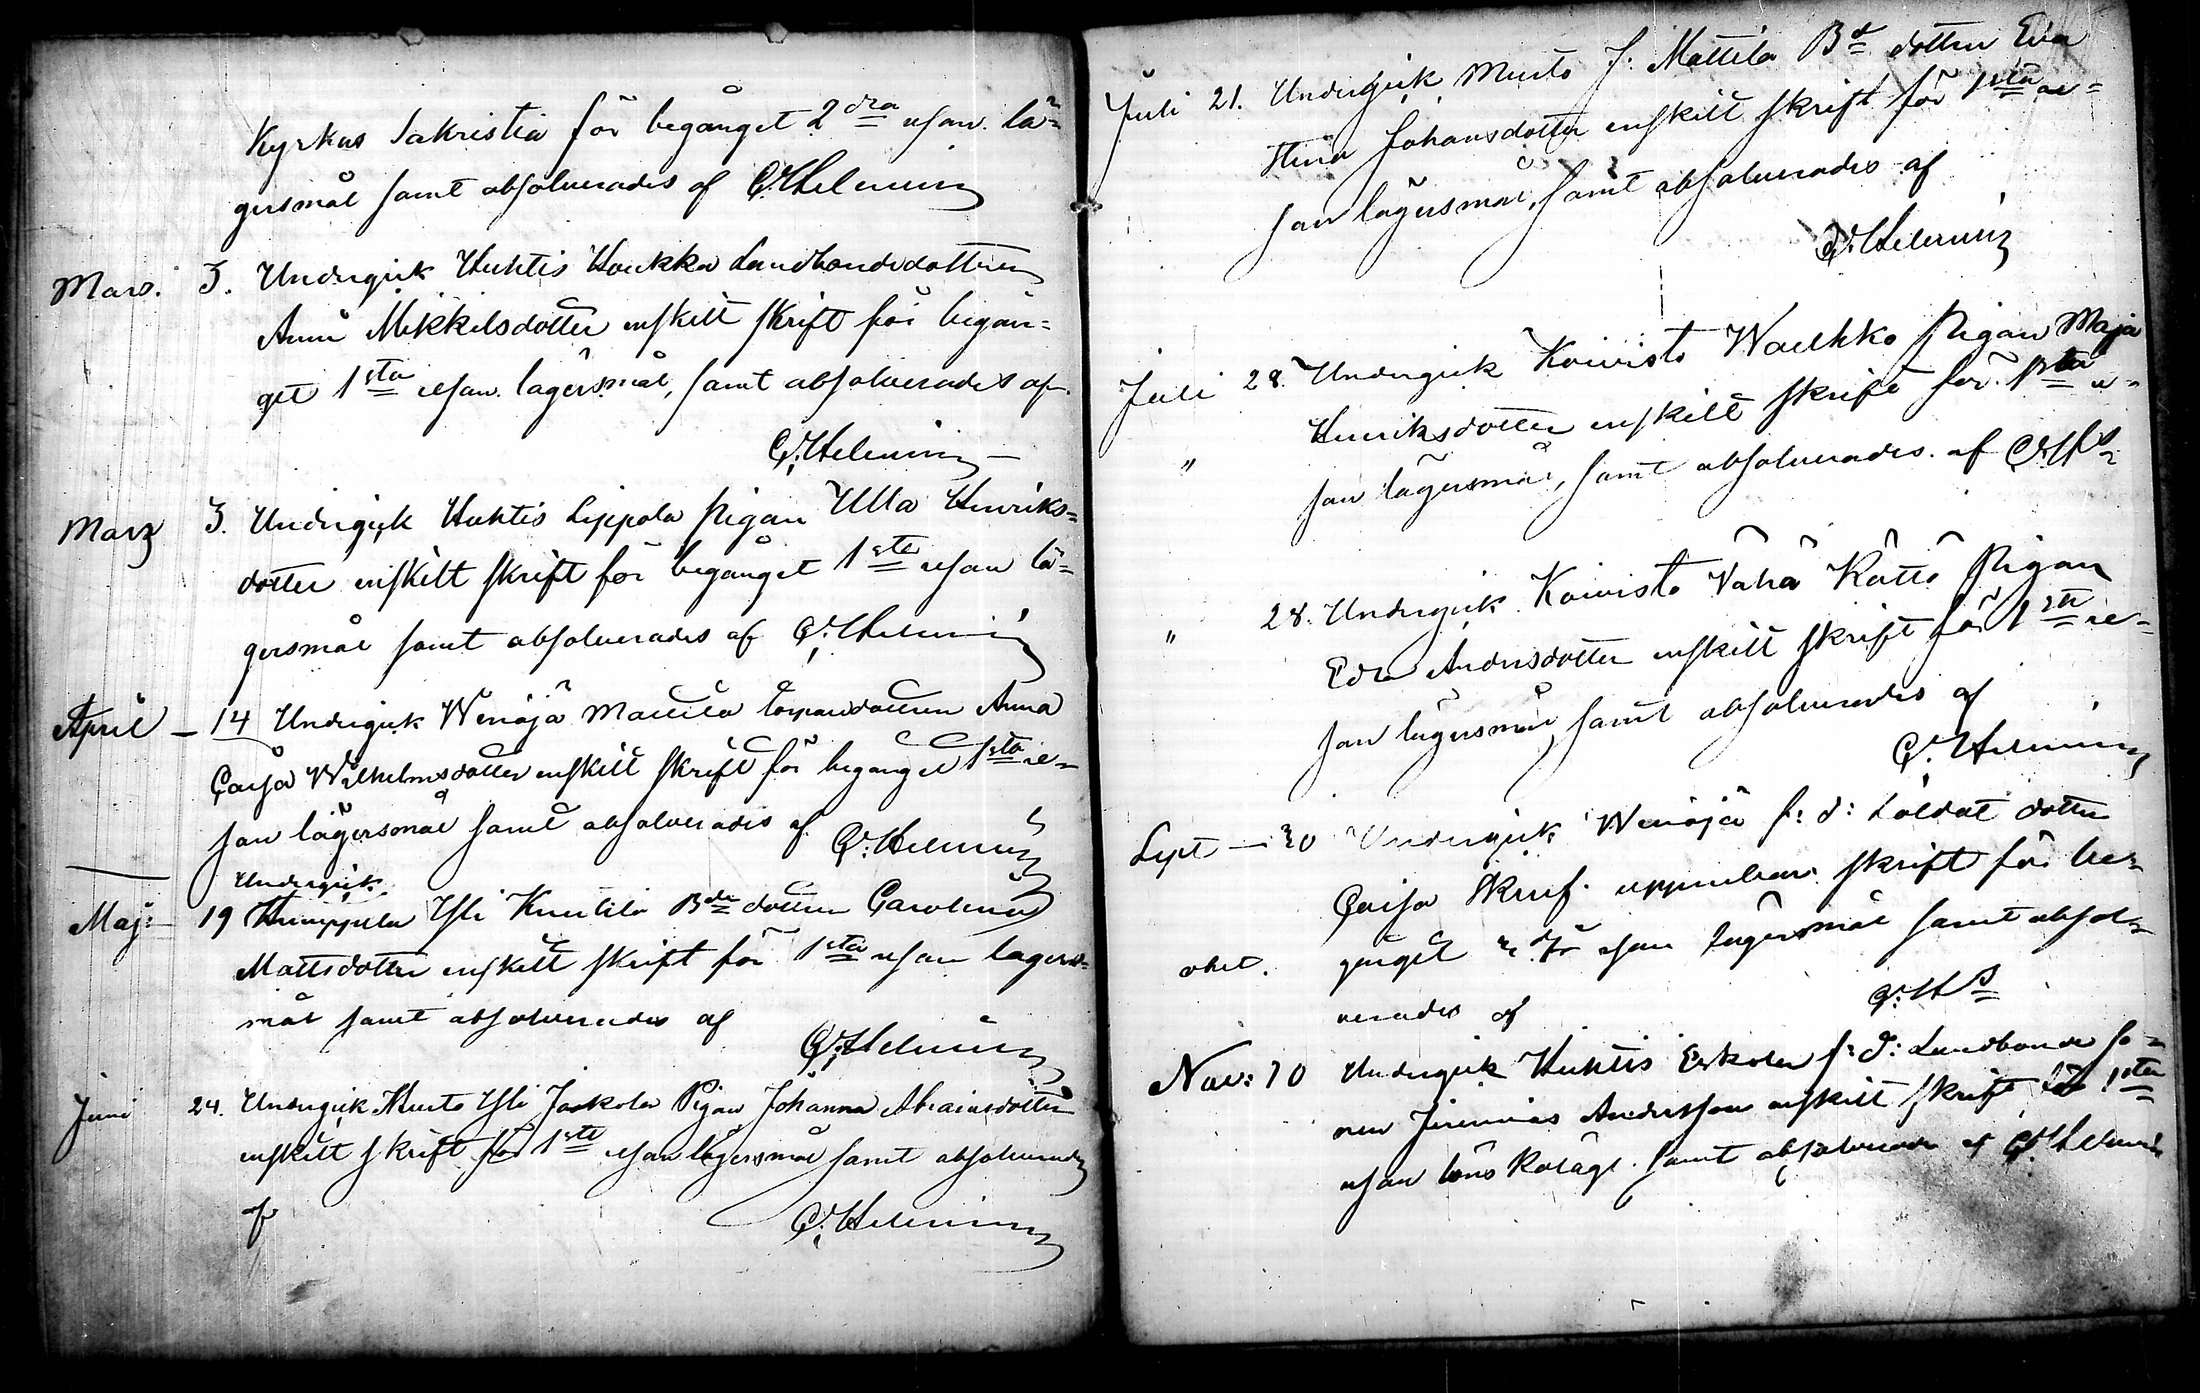 Kyrkas Sakristia för begånget 2dra resan lä-
gersmål samt absolverades af G. Helenius
Mars. 3. Undergick Huhtis Houkka Landbondedottren
Anna Mikkelsdotter enskilt skrift för begån-
get 1sta resan lägersmål, samt absolverades af
G. Helenius
Mars 3. Undergick Huhtis Seppälä pigan Ulla Henriks-
dotter enskilt skrift för begånget 1sta resan lä-
gersmål samt absolverades af G. Helenius
April 14 Undergick Wenäjä Mattila torpardottren Anna
Cajsa Wilhelmsdotter enskilt skrift för begånget 1sta re-
san lägersmål samt absolverades af G. Helenius
Undergick
Maj: 19 Humppila Yli Knuutila Bde dottren Carolina
Mattsdotter enskilt skrift för 1sta resan lägers-
mål samt absolverades af
G. Helenius
Juni 24. Undergick Murto Yli Jaskola Pigan Johanna Abramsdotter
enskilt skrift för 1sta resan lägersmål samt absolverades
af G. Helenius
Juli 21. Undergick Murto J. Mattila Bd dottren Eva
Stina Johansdotter enskilt skrift för 1sta re-
san lägersmål, samt absolverades af
G. Helenius
Juli 28. Undergick Koivisto Pigan Maja
Henriksdotter enskilt skrift för 1sta re-
" san lägersmål, samt absolverades af G. Hs
28. Undergick Koivisto Vähä Kättö Pigan
" Edla Andersdotter enskilt skrift för 1sta re-
san lägersmål, samt absolverades af
G. Helenius
Sept — 30 Undergick Wenäjä f: d: Soldat dotter
Cajsa Skruf uppenbar skrift för be-
gånget resan lägersmål samt absol-
verades af G. Hs
Nov: 10 Undergick Huhtis Erkola f: d: Landbonde so-
nen Jeremias Andersson enskilt skrift för 1sta
resan löns kaläge samt absolverades af G. Helenius